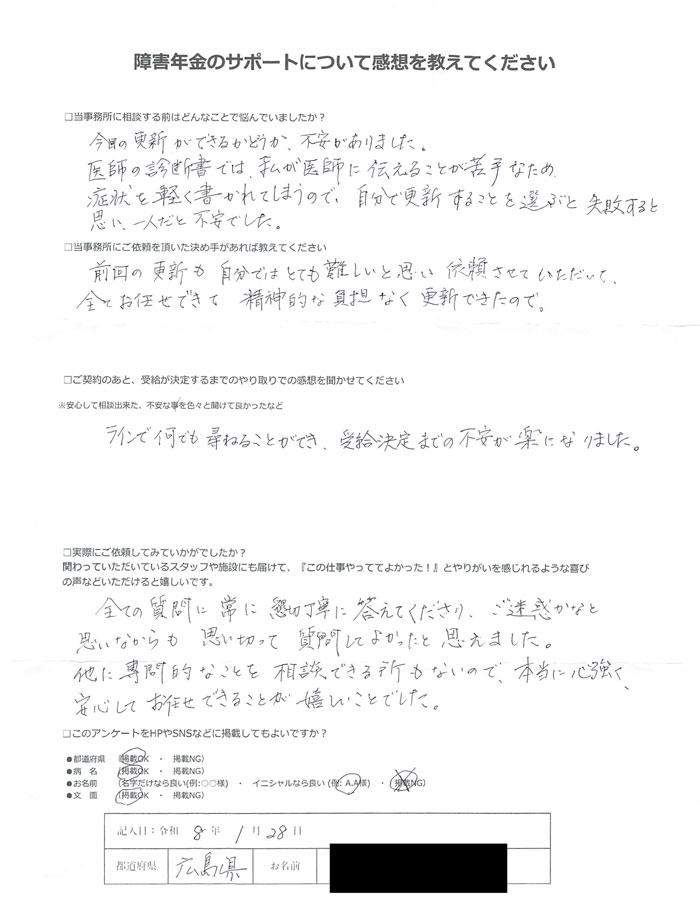 障害年金のサポートについて感想を教えてください
□当事務所に相談する前はどんなことで悩んでいましたか?
今回の更新ができるかどうか、不安がありました。
医師の診断書では、私が医師に伝えることが苦手なため
症状を軽く書かれてしまうので、自分で更新することを選ぶと失敗すると
思い、一人だと不安でした。
□当事務所にご依頼を頂いた決め手があれば教えてください
前回の更新も自分ではとても難しいと思い依頼させていただいて、
全てお任せできて精神的な負担なく更新できたので。
□ご契約のあと、受給が決定するまでのやり取りでの感想を聞かせてください
※安心して相談出来た、不安な事を色々と聞けて良かったなど
ラインで何でも尋ねることができ、受給決定までの不安が楽になりました。
□実際にご依頼してみていかがでしたか?
関わっていただいているスタッフや施設にも届けて、『この仕事やっててよかった!』とやりがいを感じれるような喜び
の声などいただけると嬉しいです。
全ての質問に常に懇切丁寧に答えてくださり、ご迷惑かなと
思いながらも思い切って質問してよかったと思えました。
他に専門的なことを相談できる所もないので、本当に心強く、
安心してお任せできることが嬉しいことでした。
□このアンケートをHPやSNSなどに掲載してもよいですか?
●都道府県 (掲載OK ・ 掲載NG)
●病 名 (掲載OK ・ 掲載NG)
●お名前 (名字だけなら良い(例:○○様) ・ イニシャルなら良い(例: A.A様) ・ 掲載NG)
●文 面 (掲載OK ・ 掲載NG)
記入日:令和 8 年 1 月 28 日
都道府県 広島県 お名前